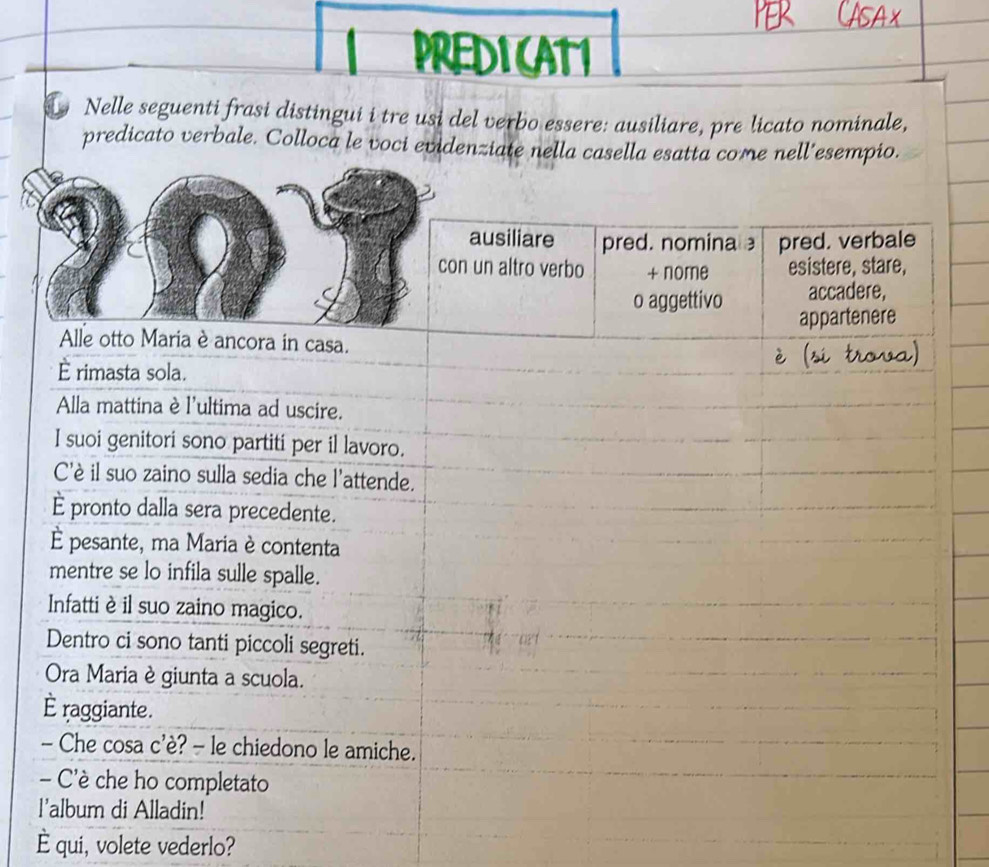 PER CASAX
I PREDICATI
Nelle seguenti frasi distingui i tre usi del verbo essere: ausiliare, pre licato nominale,
predicato verbale. Colloca le voci evidenziate nella casella esatta come nell'esempio.
ausiliare pred. nomina e pred. verbale
con un altro verbo + nome esistere, stare,
o aggettivo accadere,
appartenere
Alle otto Maria è ancora in casa. è (si trova)
È rimasta sola.
Alla mattina è l'ultima ad uscire.
I suoi genitori sono partiti per il lavoro.
C'è il suo zaino sulla sedia che l'attende.
È pronto dalla sera precedente.
È pesante, ma Maria è contenta
mentre se lo infila sulle spalle.
Infatti è il suo zaino magico.
Dentro ci sono tanti piccoli segreti.
Ora Maria è giunta a scuola.
È raggiante.
– Che cosa c'è? – le chiedono le amiche.
– C'è che ho completato
l'album di Alladin!
È qui, volete vederlo?